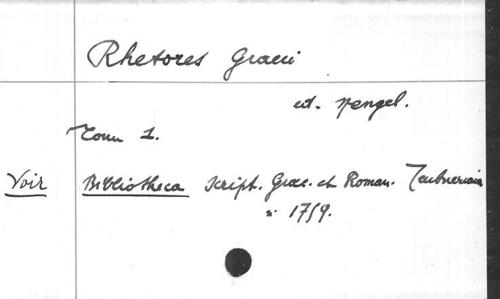 Rhetores Graeci
ed. Spengel.
Tom 1.
Voir Bibliotheca script. Graec. et Roman. Teubneriana
n. 1759.